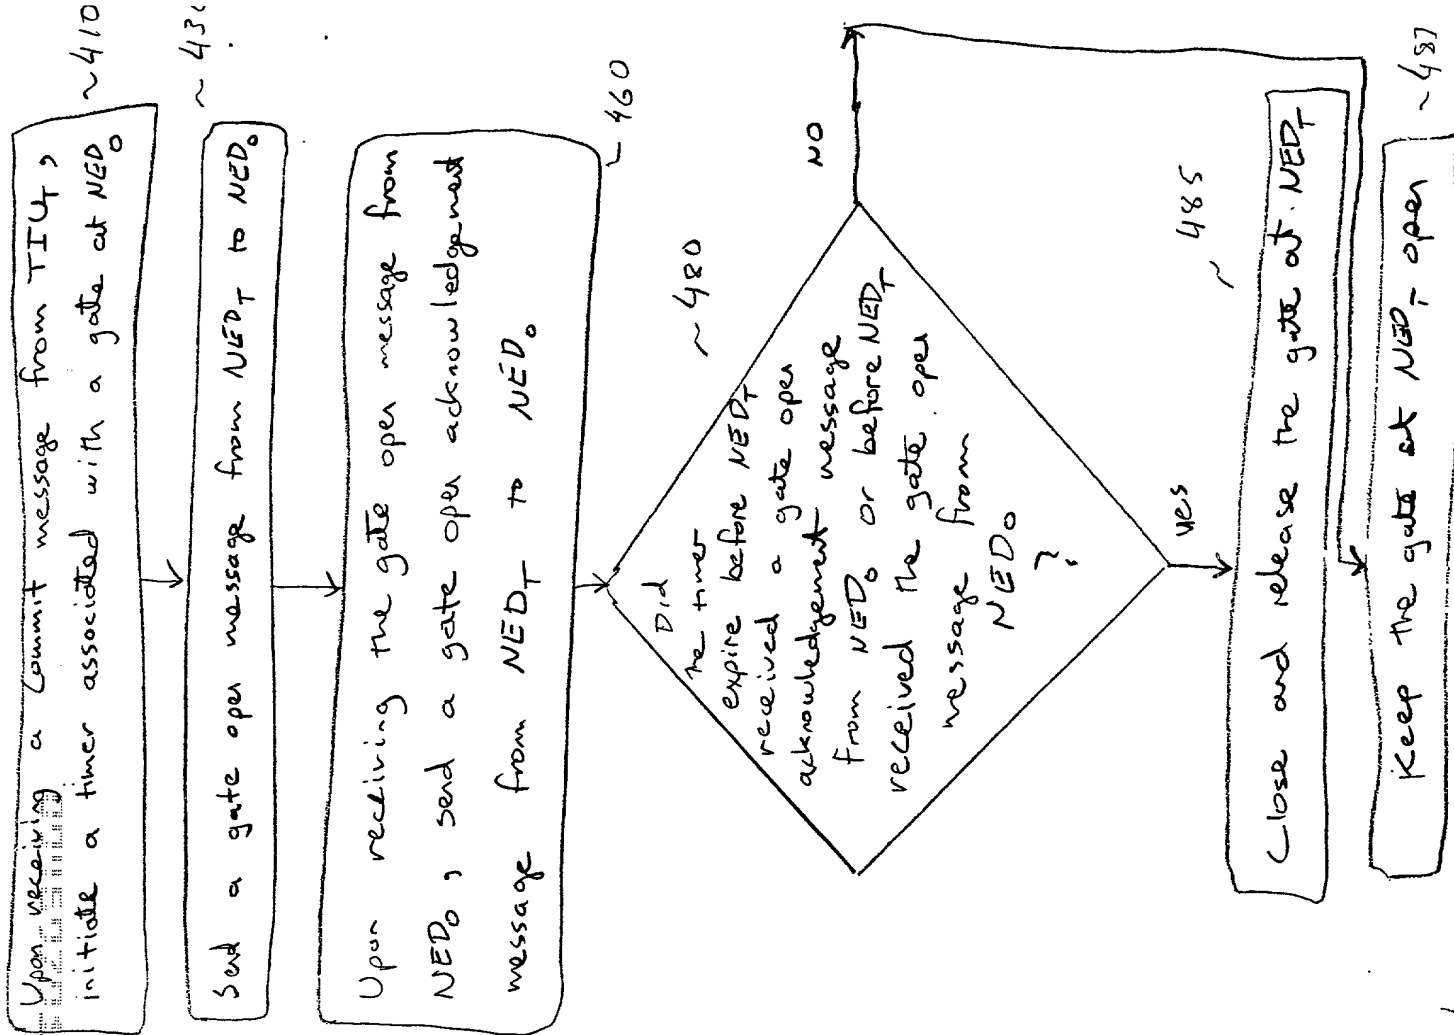 Upon receiving a commit message from TIU_T,
initiate a timer associated with a gate at NED_o
~410
Send a gate open message from NED_T to NED_o
~ 430
Upon receiving the gate open message from
NED_o, send a gate open acknowledgment
message from NED_T to NED_o
~ 460
Did
the timer
expire before NED_T
received a gate open
acknowledgement message
from NED_o or before NED_T
received the gate open
message from
NED_o
?
~480
NO
yes
Close and release the gate at NED_T
~ 485
Keep the gate at NED_T open
~487